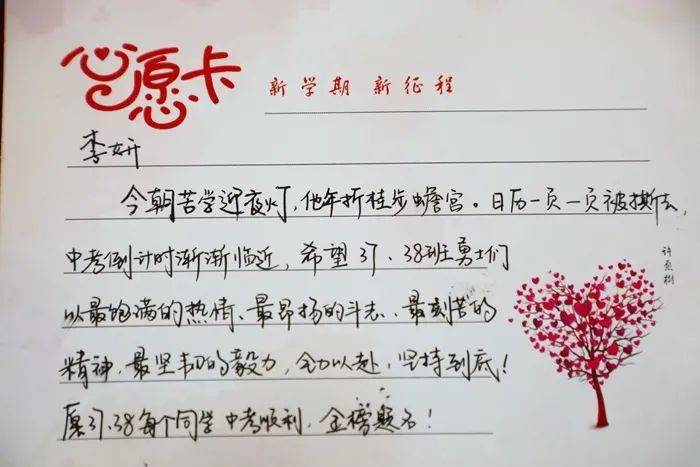 心愿卡
新学期 新征程
李妍
今朝苦学近夜灯，他年折桂步蟾宫。日历一页一页被撕去，
中考倒计时渐渐临近，希望37、38班勇士们
以最饱满的热情、最昂扬的斗志、最刻苦的
精神、最坚韧的毅力，全力以赴，坚持到底！
愿37、38每个同学中考顺利，金榜题名！
许愿树